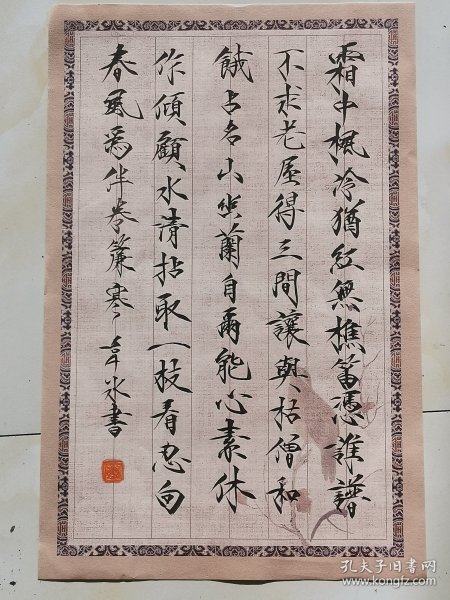 霜中楓冷猶紅無樵笛憑誰譜
不求老屋得三間讓與枯僧和
餓占名山坐蘭自爾能心素休
作傾顧水清拈取一枝看忍向
春風為伴卷簾寒 幸冰書
孔夫子旧书网
www.kongfz.com